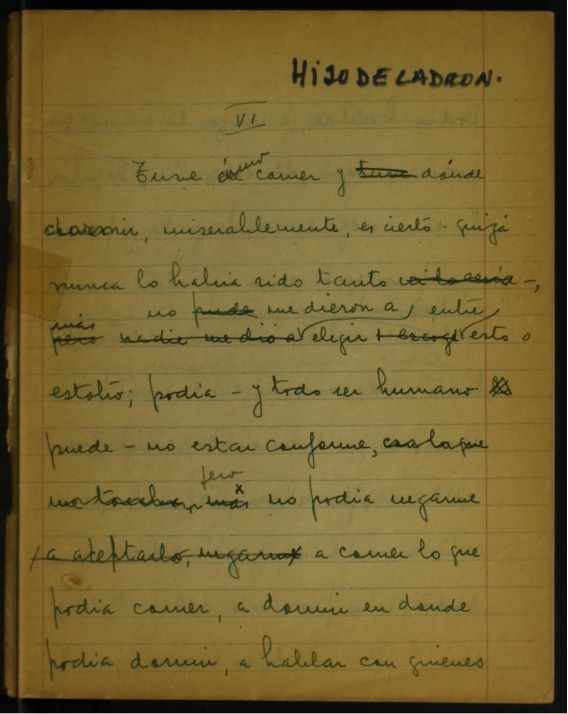 HIJO DE LADRON.
VI
Tuve cómo comer y tuve dónde
dormir, miserablemente, es cierto - quizá
nunca lo había sido tanto ni lo sería -,
no pude me dieron a, entre
más
pero nadie me dió a elegir esto o
estotro; podía - y todo ser humano
puede - no estar conforme, con lo que
pero
me tocaba, más no podía negarme
a aceptarlo, negarme a comer lo que
podía comer, a dormir en donde
podía dormir, a hablar con quienes